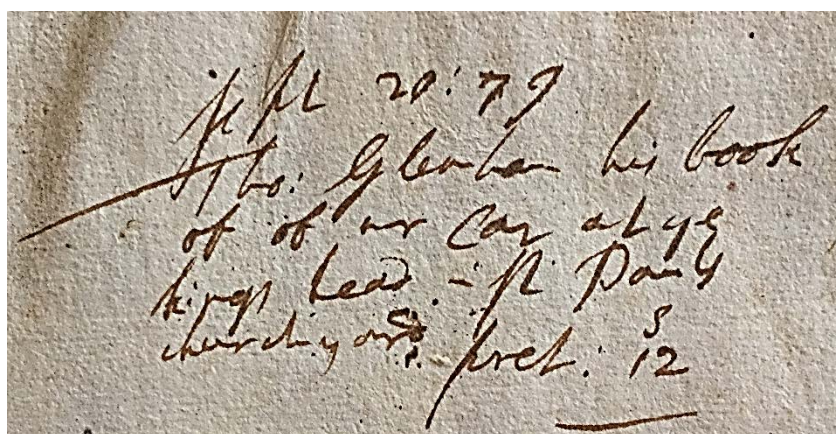 Sept 20: 79
Tho: Glenham his book
of of mr Car at ye
kings head - St Pauls
church yard. pret: 12s